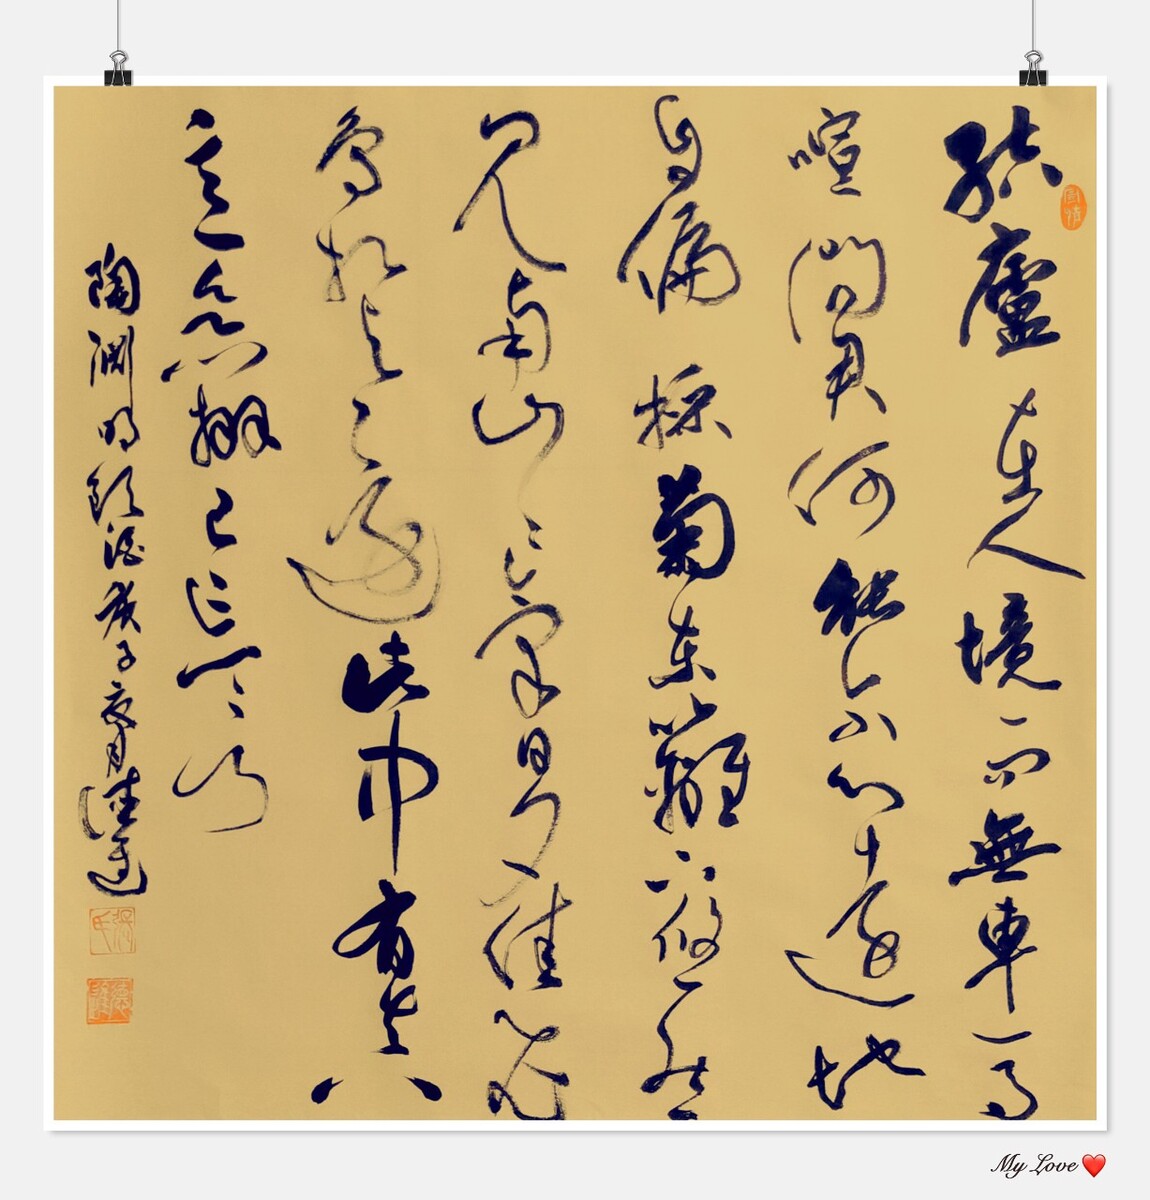 結廬在人境而無車馬
喧問君何能尔心遠地
自偏採菊東籬下悠然
見南山〻氣日夕佳飛
鳥相与還此中有真
意欲辨已忘言
陶淵明飲酒庚子夏月
張氏
My Love ❤️